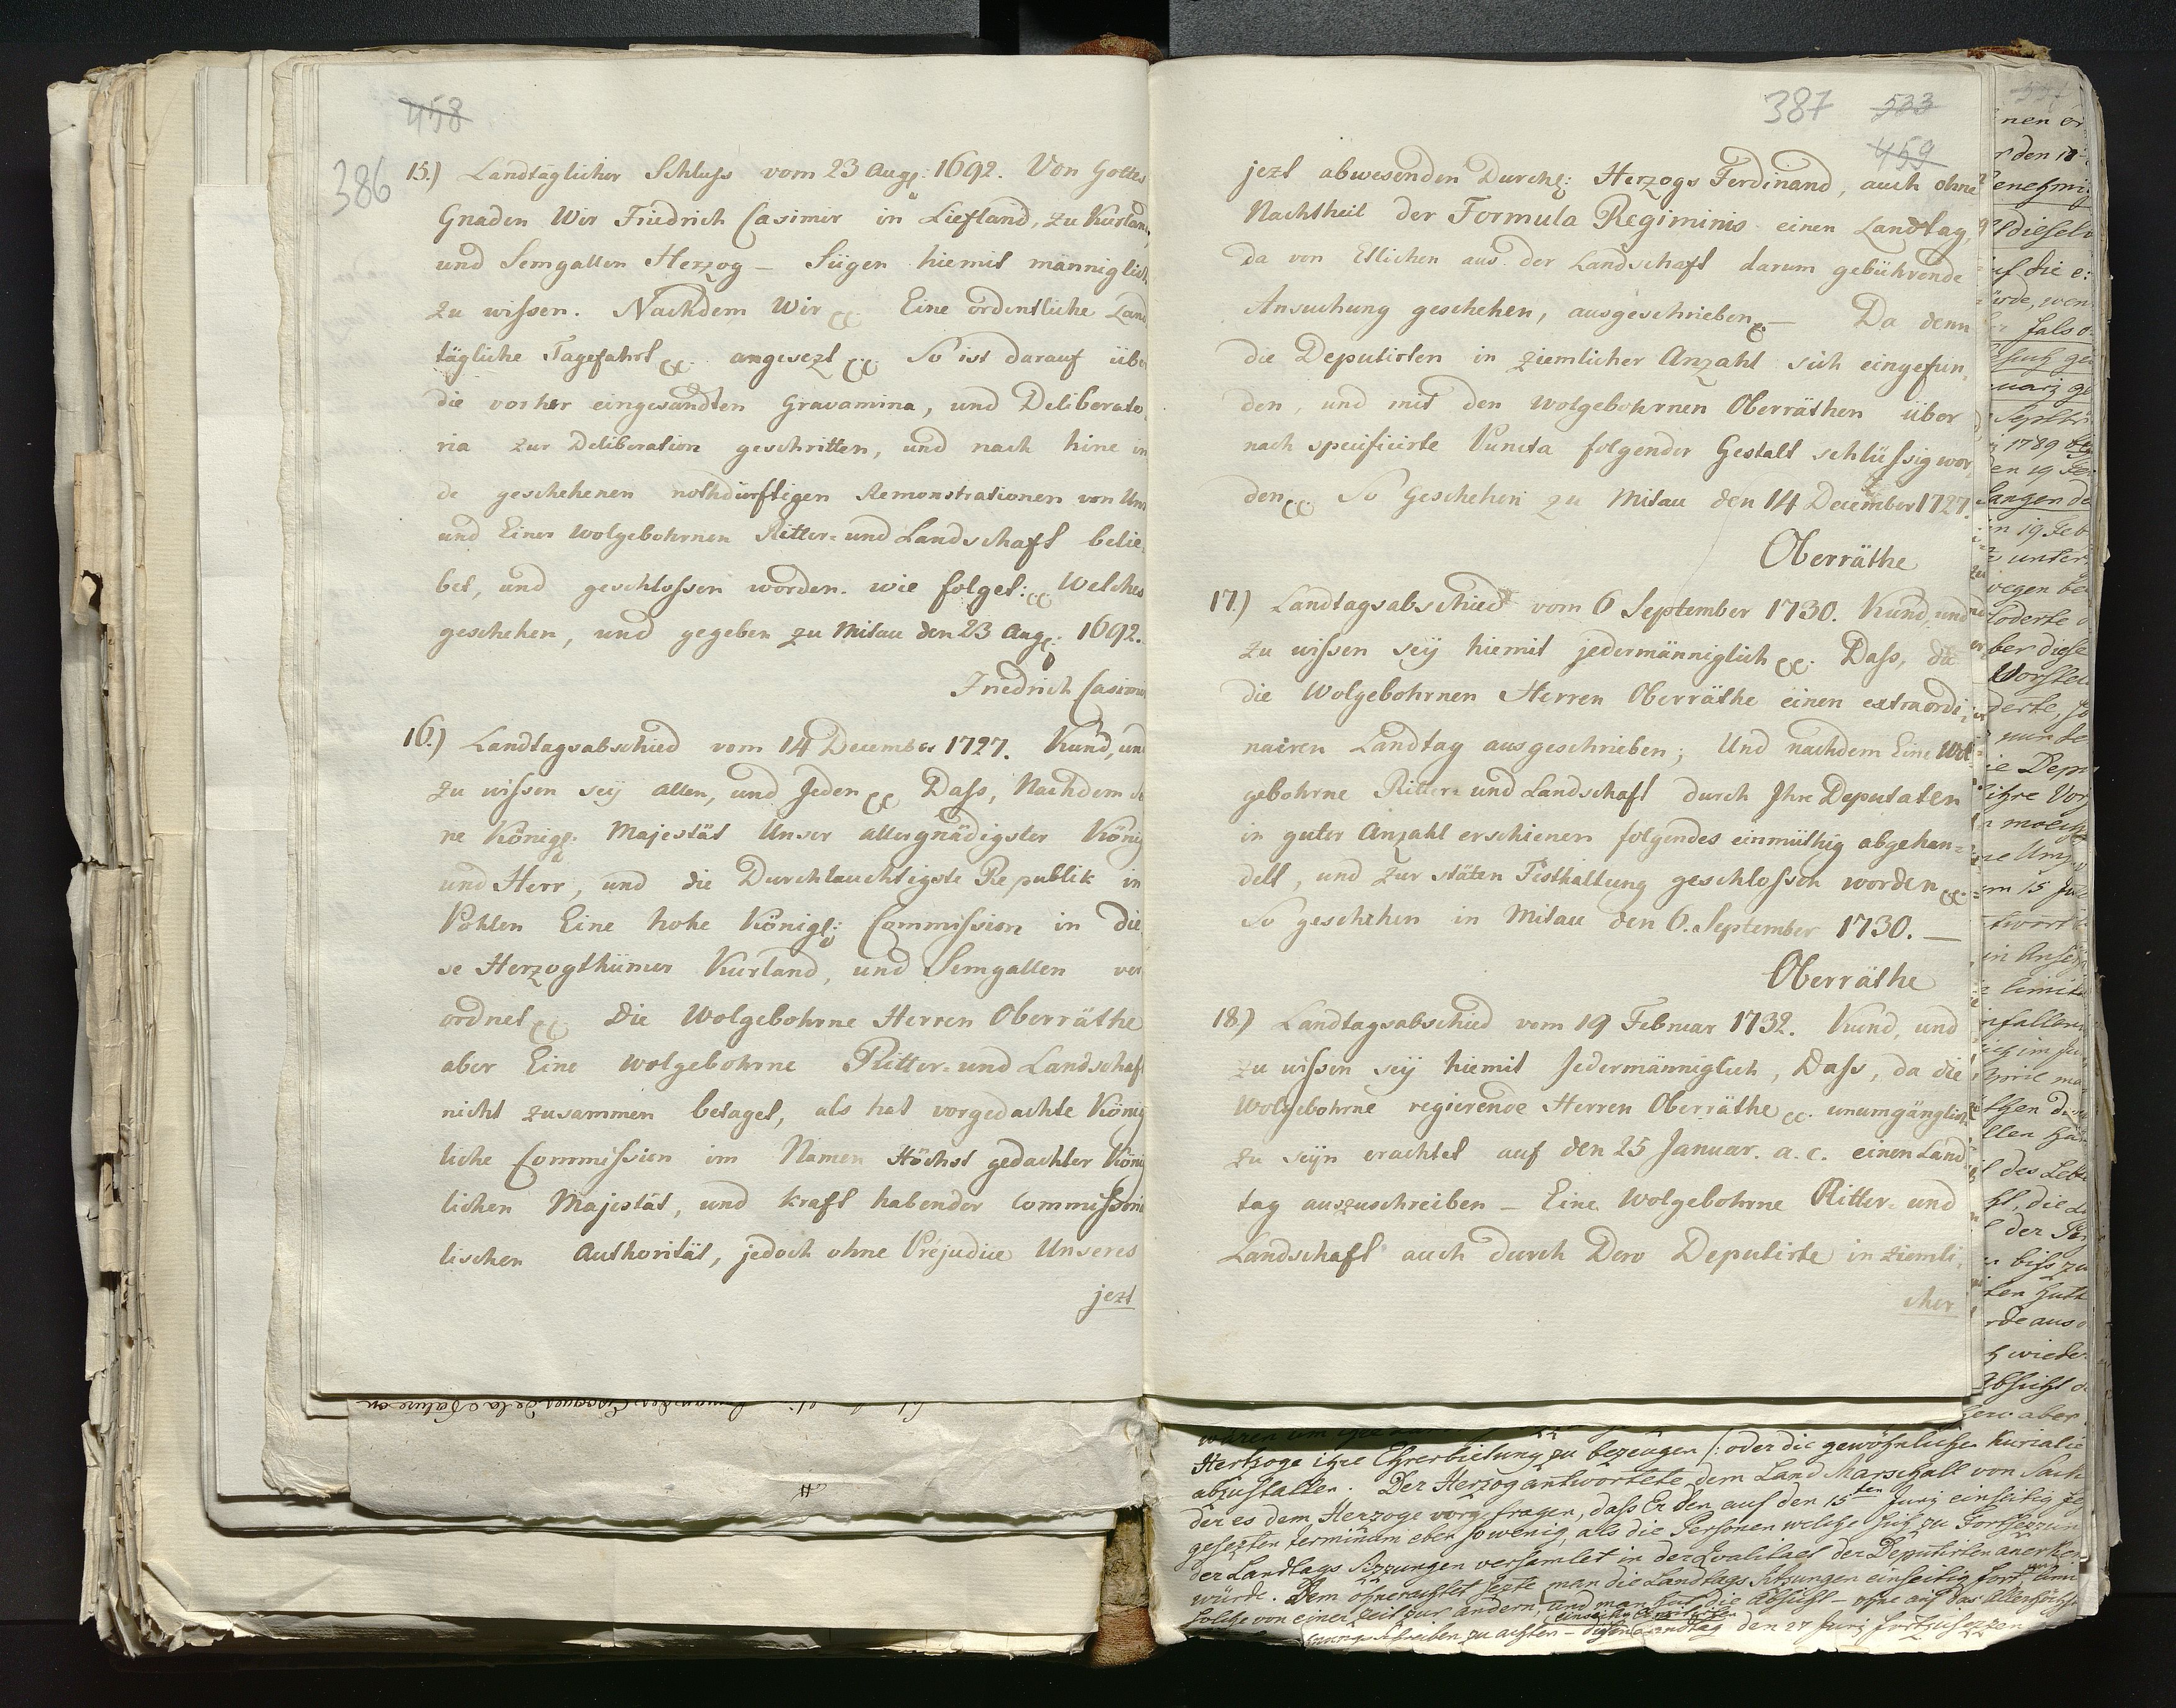 458
386
15.) Landtäglicher Schluss vom 23 Augl: 1692. Von Gottes
Gnaden Wir Friedrich Casimir in Liefland, zu Kurland,
und Semgallen Herzog — Fügen hiemit männiglich
zu wissen. Nachdem Wir pp. Eine ordentliche Land
tägliche Tagefahrt pp. angesezt pp. So ist darauf über
die vorher eingesandten Gravamina, und Deliberato
ria zur Deliberation geschritten, und nach hinc in
de geschehenen nothdürftigen Remonstrationen von Uns
und Einer Wolgebohrnen Ritter- und Landschaft belie-
bet, und geschlossen worden. wie folget: pp Welches
geschehen, und gegeben zu Mitau den 23 Augl: 1692.
Friedrich Casimir
16.) Landtagsabschied vom 14 December 1727. Kund, und
zu wissen sey allen, und Jeden pp Dass, Nachdem se
ne Königl: Majestät Unser allergnädigster König
und Herr, und die Durchlauchtigste Republik in
Pohlen Eine hohe Königl: Commission in die
se Herzogthümer Kurland, und Semgallen ver
ordnet pp. Die Wolgebohrne Herren Oberräthe
aber Eine wolgebohrne Ritter- und Landschaft
nicht zusammen betaget, als hat vorgedachte König
liche Commission im Namen Höchst gedachter König
lichen Majestät, und kraft habender Commissoria
lischen Authorität, jedoch ohne Préjudice Unseres
jezt
387 533
459
jezt abwesenden Durchl: Herzogs Ferdinand, auch ohne
Nachtheil der Formula Regiminis einen Landtag,
da von Etlichen aus der Landschaft darum gebührende
Ansuchung geschehen, ausgeschrieben pp — Da denn
die Deputirten in ziemlicher Anzahl sich eingefun,
den, und mit den Wolgebohrnen Oberräthen über
nach specificirte Puncta folgender Gestalt schlüssig wor,
den pp So Geschehen zu Mitau den 14 December 1727.
Oberräthe
17.) Landtagsabschied vom 6 September 1730. Kund, und
zu wissen sey hiemit jedermänniglich pp. Dass, da
die Wolgebohrnen Herren Oberräthe einen extraordi,
nairen Landtag ausgeschrieben; Und nachdem Eine Wol-
gebohrne Ritter- und Landschaft durch Ihre Deputaten
in guter Anzahl erschienen folgendes einmüthig abgehan-
delt, und zur stäten Festhaltung geschlossen worden pp.
So geschehen in Mitau den 6. September 1730. —
Oberräthe
18.) Landtagsabschied vom 19 Februar 1732. Kund, und
zu wissen sey hiemit Jedermänniglich, Dass, da die
Wolgebohrne regierende Herren Oberräthe pp. unumgänglich
zu seyn erachtet auf den 25 Januar. a. c. einen Land
tag auszuschreiben — Eine Wolgebohrne Ritter- und
Landschaft auch durch Dero Deputirte in ziemli,
cher
Hertzoge ihre Ehrerbietung zu bezeugen /: oder die gewöhnlichen Kurialie
abzustatten. Der Herzog antwortete dem Land Marschall von Sack
der es dem Herzoge vorgetragen, dass Er den auf den 15ten Junj einseitig
gesezten terminum eben so wenig, als die Personen welche sich zu Fortsezzun
der Landtags Sizzungen versamlet in der Qualitaet der Deputirten anerken
würde. Dem ohnerachtet sezte man die Landtags Sitzungen einseitig fort
solche von einer Zeit zur andern, und man hat die Absicht — ohne auf das Allerhöchste
Schreiben zu achten — diesen Landtag den 27 Junj fortzusezzen